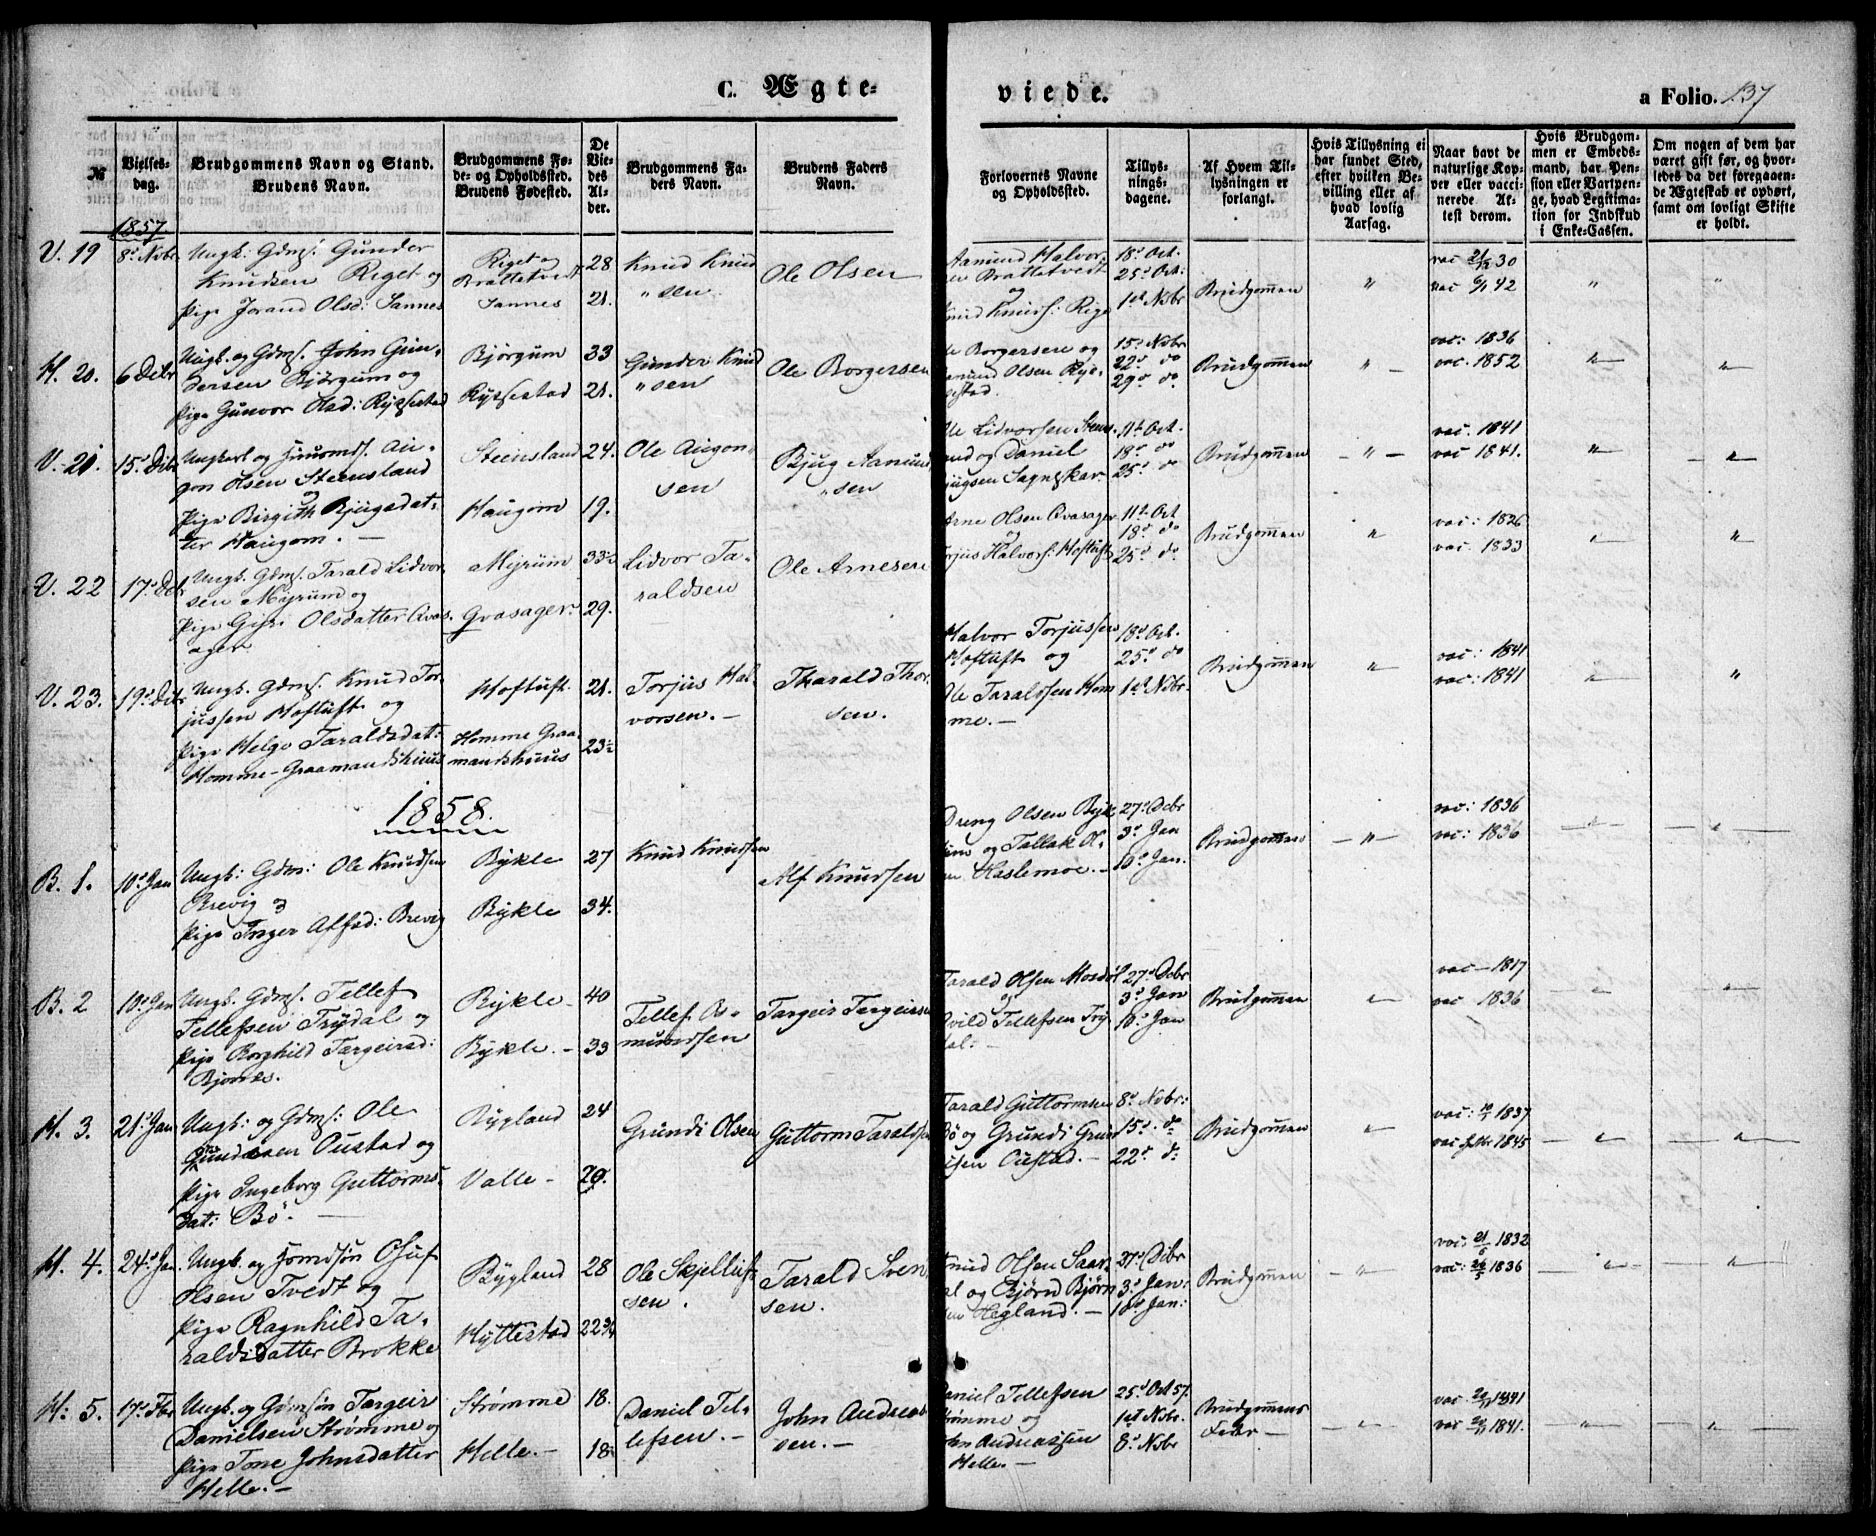 C. Ægte-
viede.
a Folio. 137
№
Vielses-
dag.
Brudgommens Navn og Stand.
Brudens Navn.
Brudgommens Fø-
de- og Opholdssted.
Brudens Fødested.
De
Vie-
des
Al-
der.
Brudgommens Fa-
ders Navn.
Brudens Faders
Navn.
Forlovernes Navne
og Opholdssted.
Tillys-
nings-
dagene.
Af Hvem Til-
lysningen er
forlangt.
Hvis Tillysning ei
har fundet Sted,
efter hvilken Be-
villing eller af
hvad lovlig
Aarsag.
Naar havt de
naturlige Kop-
per eller vacci-
nerede At-
test derom.
Hvis Brudgom-
men er Embeds-
mand, har Pen-
sion eller Vartpen-
ge, hvad Legitima-
tion for Indskud
i Enke-Cassen.
Om nogen af dem har
været gift før, og hvor-
ledes da det foregaaen-
de Ægteskab er ophørt,
samt om lovligt Skifte
er holdt.
1857
V. 19 8d Nvbr Ungk: Gdms: Gunder
Knudsen Riget og
Pige Jorand Olsd: Sannes
Riget og
Brattetvedt
Sannes
28
21.
Knud Knud
" sen
Ole Olsen
Aamund Halvor
en Brattetvedt
og
Knud Knuds: Rige
18d Oct.
25d Oct:
1ste Nvbr
Brudgommen
"
vac 21/12 30
vac 6/11 42
"
"
H. 20. 6 Debr Ungk. og Gdms. John Gun-
dersen Bjørgum og
Pige Gunvor Olsd: Rysstad
Bjørgum
Rysstad
33
21.
Gunder Knud
" sen
Ole Borgersen
Ole Borgersen og
Aamund Olsen Rys-
stad.
15d Nvbr
22d do
29d do
Brudgommen
" -
vac: 1836
vac. 1852
"
"
V. 21. 15d Debr Ungkarl og Huusmds. Au-
gon Olsen Steensland
og
Pige Birgith Bjugsdat-
ter Haugom. -
Steensland
Haugom
24.
19.
Ole Augon-
sen
Bjug Aamund
" sen
Ole Lidvorsen Stens-
land og Daniel
Bjugsen Sagneskar
11te Oct.
18d do
25d do
Brudgommen
- " -
vac. 1841
vac 1841.
"
"
V. 22 17d Debr Ungk. Gdms. Tarald Lidvor-
sen Myrum og
Pige Gyro Olsdatter Qvas-
ager
Myrum
Qvasager
33
29.
Lidvor Ta-
raldsen
Ole Arnesen
Arne Olsen Qvasager
og
Torjus Halvors: Hoftuft
11te Oct
18d do
25d do
Brudgommen
"
vac: 1826
vac. 1833
"
"
V. 23. 19d Debr Ungk. Gdms. Knud Tor-
jussen Hoftuft og
Pige Helge Taraldsdat:
Homme-Graamandshuus
Hoftuft
Homme Graa-
mandshuus
21.
23
Torjus Hal-
vorsen. -
Tharald Thor
sen.
Halvor Torjussen
Hoftuft og
Ole Taraldsen Hom
me. -
18d Oct.
25d do
1ste Nvbr.
Brudgommen
"
vac: 1841
vac: 1841
"
"
1858.
B. 1. 10d Jan Ungk: Gdms: Ole Knudsen
Brevig og
Pige Inger Alfsd: Brevig
Bykle
Bykle
27
34.
Knud Knudsen
Alf Knudsen
Dreng Olsen Bykl
og Tallak Ol-
Haslemoe. -
27d Debr
3d Jan
10d Jan.
Brudgommen
- " -
vac: 1836
vac: 1836
"
"
B. 2 10d Jan Ungk. Gdms. Tellef
Tellefsen Trydal og
Pige Borghild Targeirsd:
Bjones.
Bykle -
Bykle. -
40
33
Tellef As-
mundsen
Targeir Targeirsen
Tarald Olsen Mosdøl
og
Tellefsen Try-
dal. -
27d Debr
3d Jan
10d Jan
Brudgommen
"
vac - 1817
vac 1836
"
"
H. 3. 21d Jan Ungk: og Gdms: Ole
Grundesen Oustad og
Pige Ingeborg Guttorms-
dat: Bø. -
Bygland
Valle -
24
20.
Grundi Olsen
Guttorm Taraldsen
Tarald Guttormsen
Bø og Grundi Grund
Oustad. -
8d Nvbr:
15d do
22d do
Brudgommen
"
vac: 1837
vac 1845
"
"
H. 4. 24d Jan. Ungk. og Gdmdsøn Osuf
Olsen Tvedt og
Pige Ragnhild Ta-
raldsdatter Brokke
Bygland
Hyllestad
28
22 3/4
Ole Skjelluf-
sen.
Tarald Sven
sen.
Knud Olsen Saar-
og Bjørn Bjørn
Hegland. -
27d Debr
3d Jan:
10d Jan:
Brudgommen
"
vac: 21/6 1832
vac: 26/5 1836
"
"
H: 5. 17d Fbr Ungk. og Gdmsøn Targeir
Danielsen Strømme og
Pige Tone Johnsdatter
Helle. -
Strømme
Helle. -
18.
18
Daniel Tel-
lefsen. -
John Andreas
sen. -
Daniel Tellefsen
Strømme og
John Andreassen
Helle. -
25d Oct 57.
1ste Nvbr.
8d Nvbr
Brudgommens
Fader -
"
vac. 1841
vac 1841.
"
"